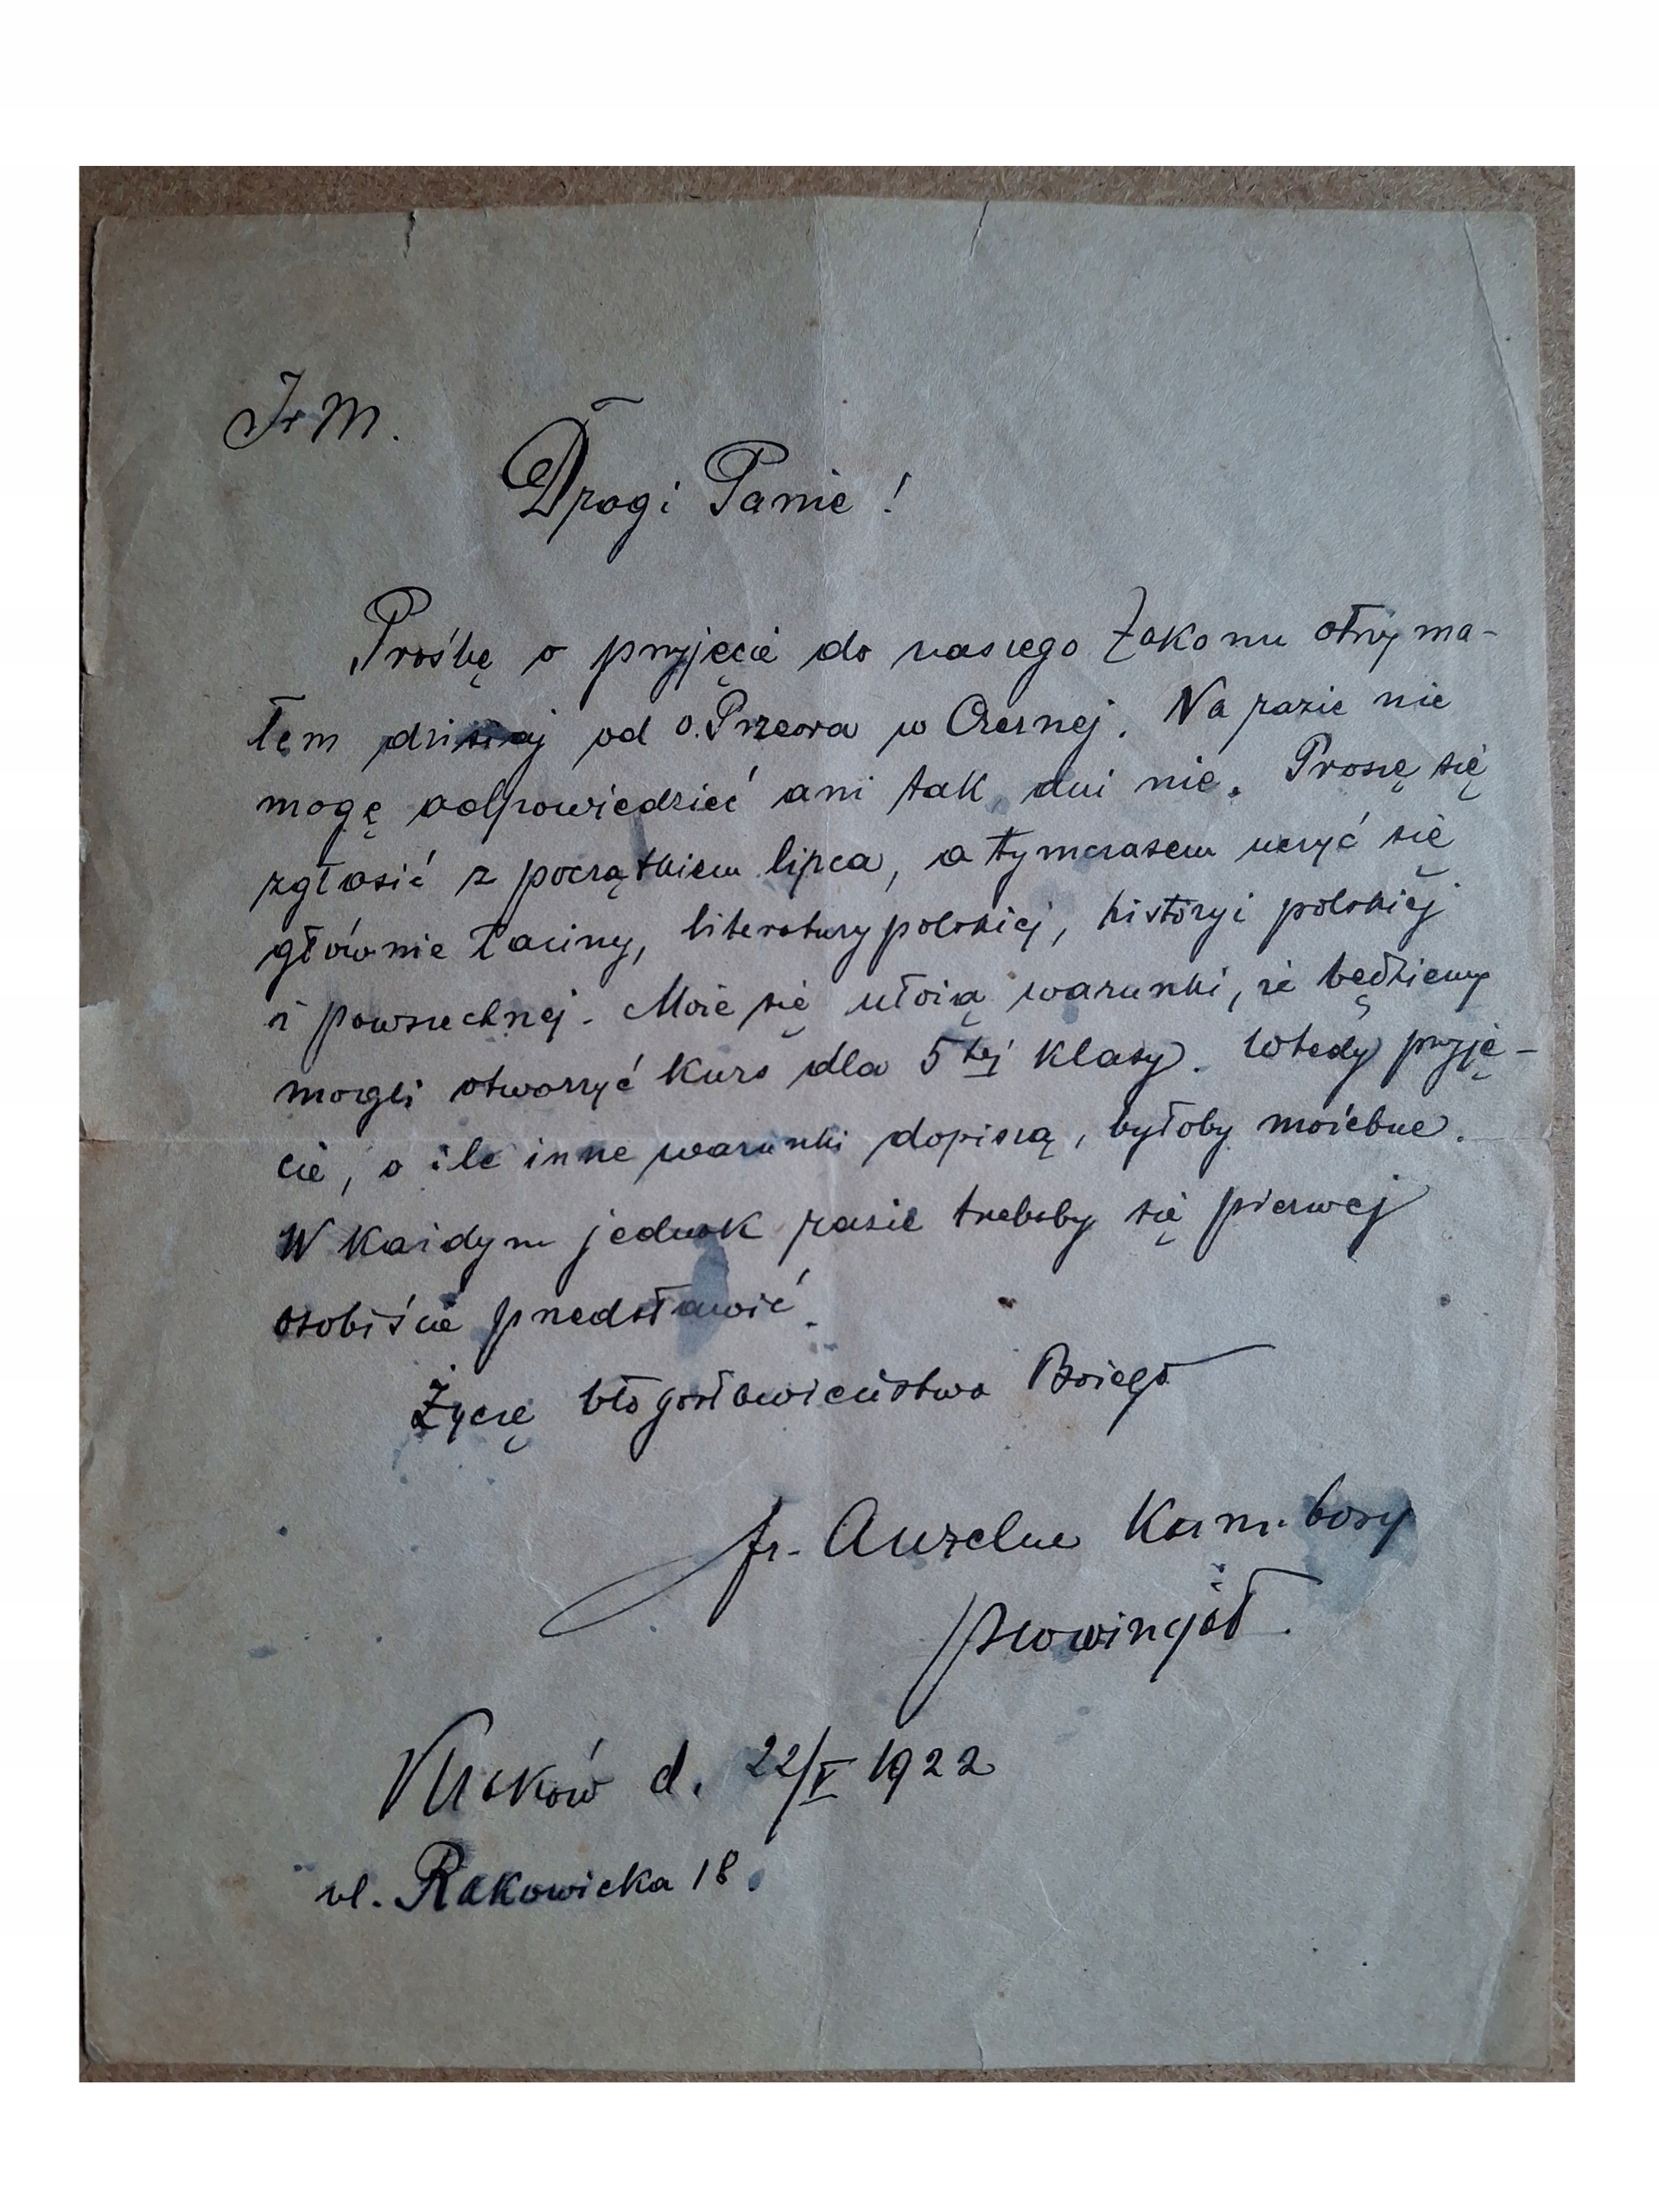 J+M.
Drogi Panie!
Prośbę o przyjęcie do naszego Zakonu otrzyma-
łem dzisiaj od o. Przeora w Czernej. Na razie nie
mogę odpowiedzieć ani tak ani nie. Proszę się
zgłosić z początkiem lipca, a tymczasem uczyć się
głównie łaciny, literatury polskiej, history i polskiej
i powszechnej. Może się ułożą warunki, że będziemy
mogli otworzyć kurs dla 5tej klasy. Wtedy przyję-
cie, o ile inne warunki dopiszą, byłoby możebne.
W każdym jednak razie trzebaby się pierwej
osobiście przedstawić.
Życzę błogosławieństwa Bożego
fr. Anzelm Karm. bosy
prowincjał.
Kraków d. 22/V 1922
ul. Rakowicka 18.